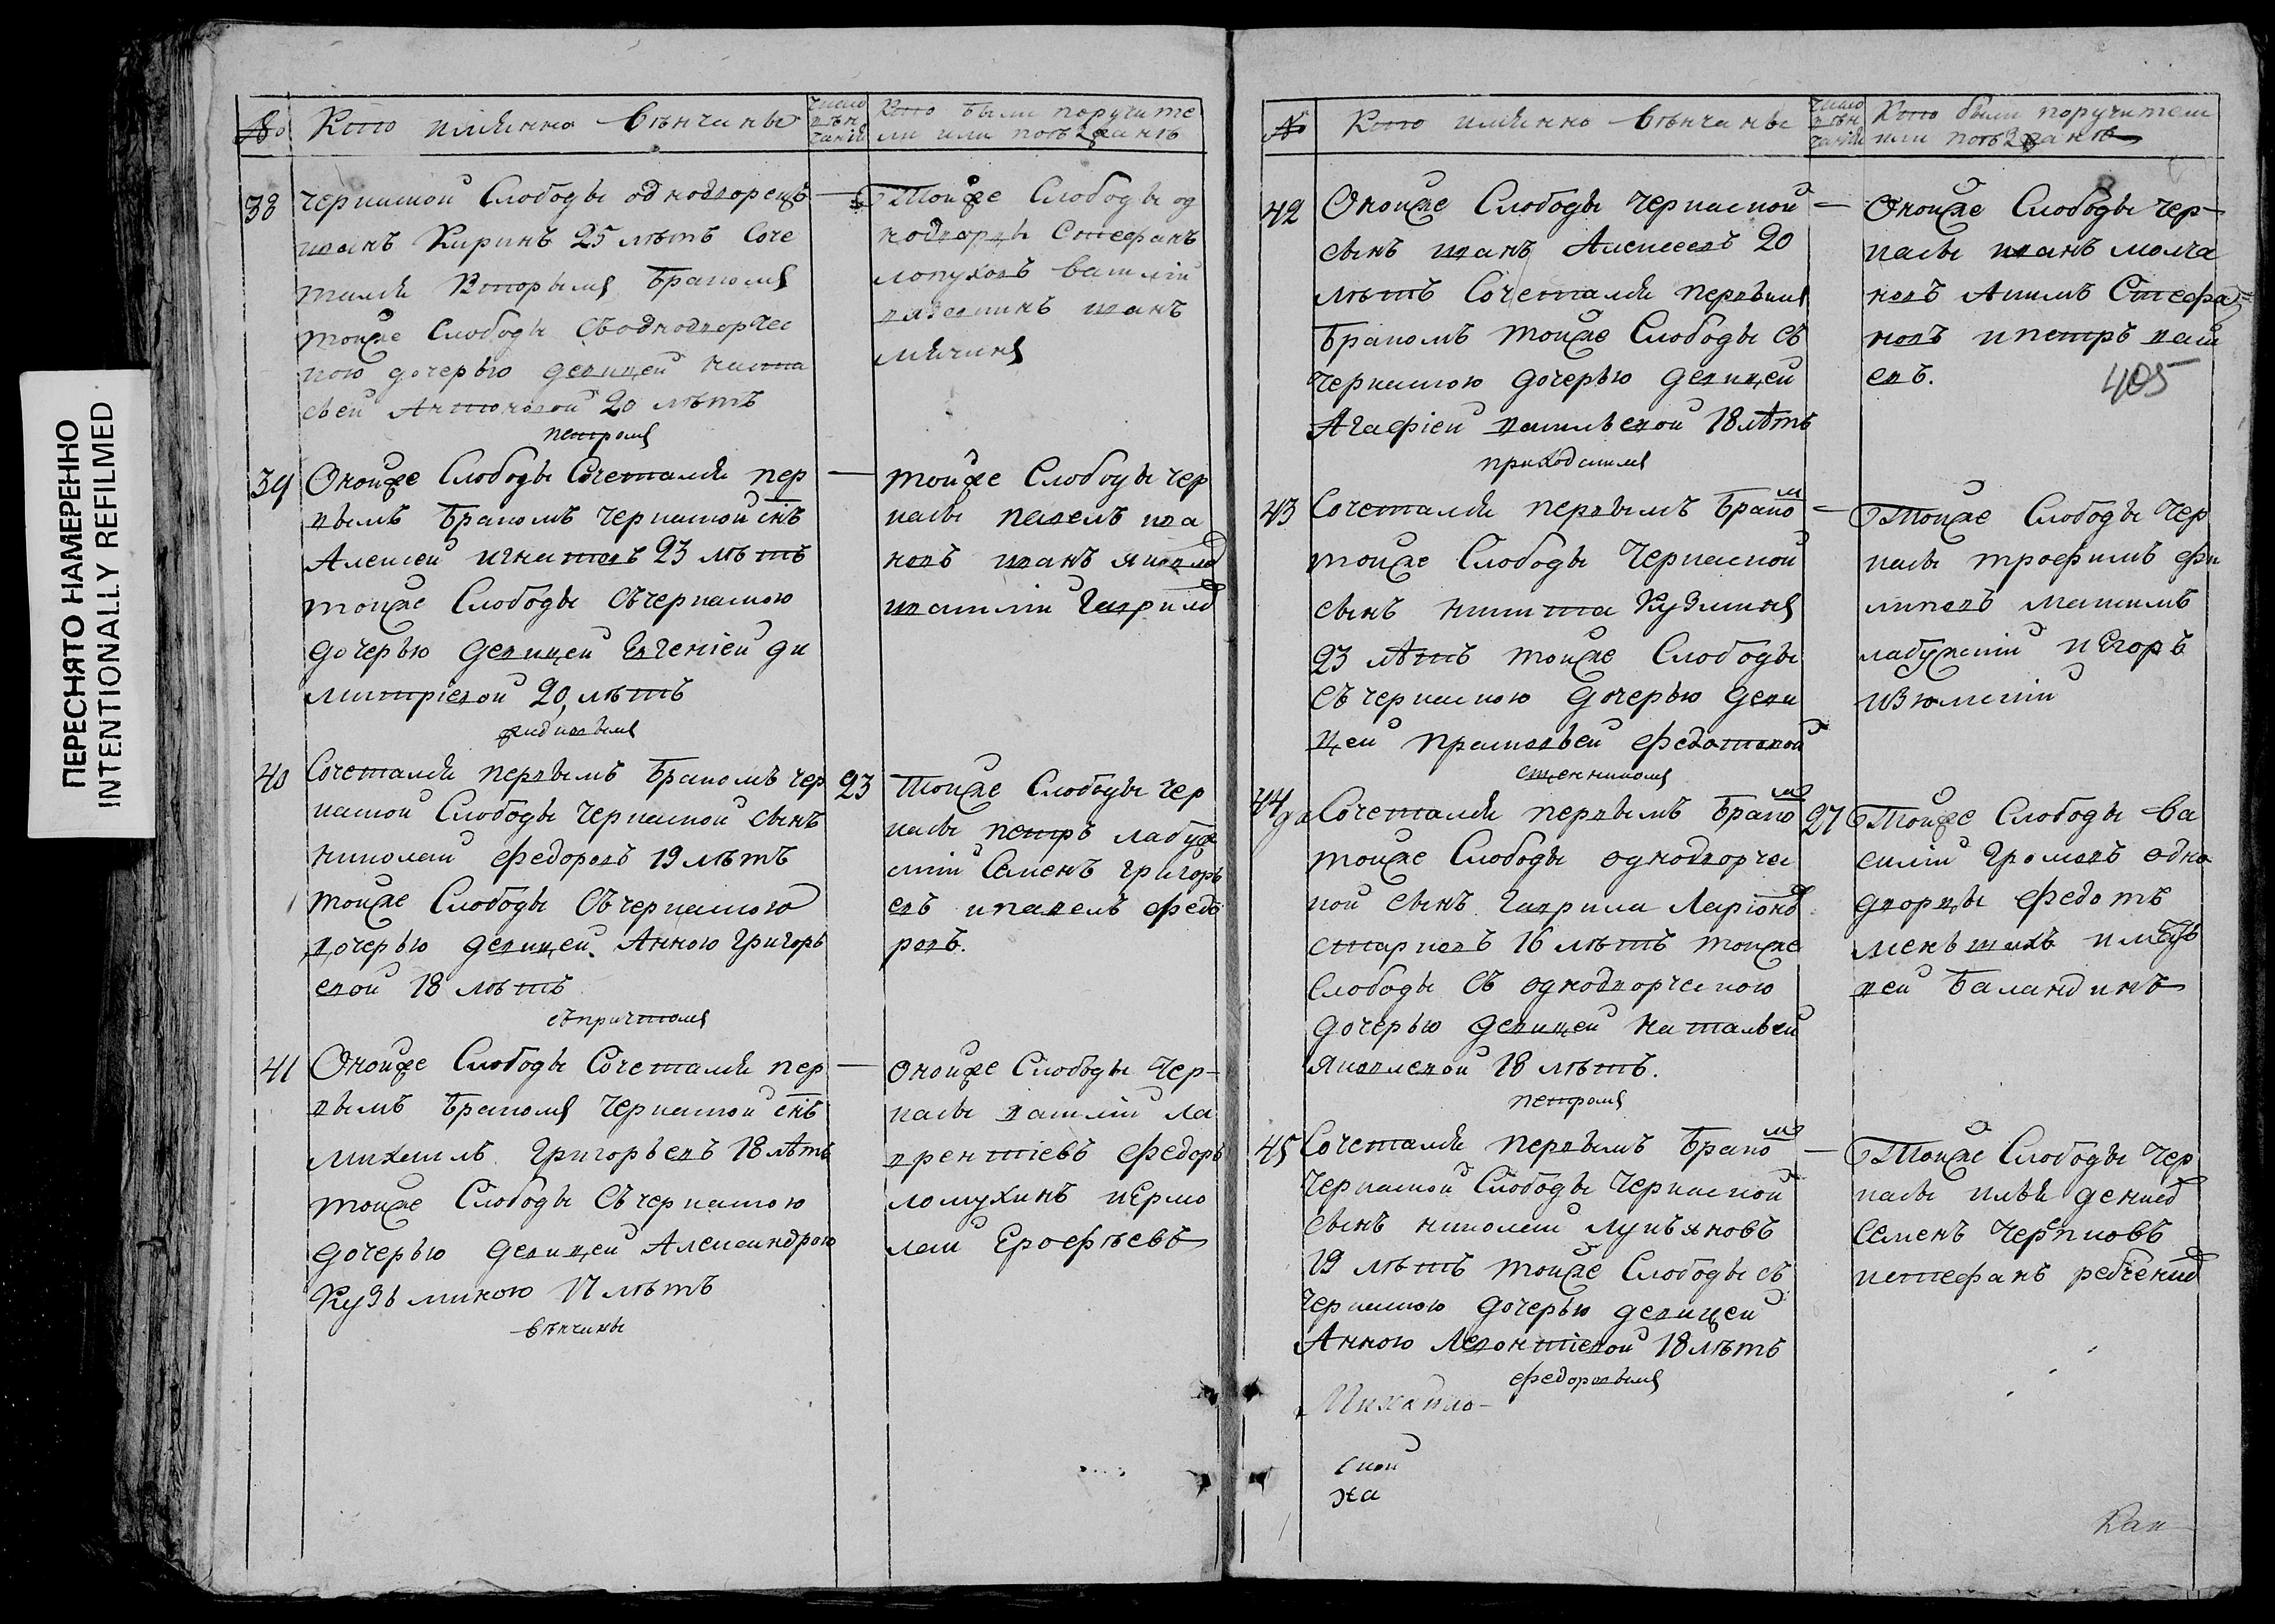 ПЕРЕСНЯТО НАМЕРЕННО
INTENTIONALLY REFILMED
№ Кто имянно венчаны
число венчаній
Кто были поручите
ли или поѣзжанѣ
38 черкаской Слободы однодворецъ
иванъ Киринъ 25 лѣтъ Соче
тался Вторымъ бракомъ
тойже Слободы Съоднодворчес
кою дочерью девицей наста
сьей Антоновой 20 лѣтъ
петромъ
Тойже Слободы од
нодворцы Стефанъ
лопуховъ василій
иванъ
мячинъ
39 Онойже Слободы Сочетался пер
вымъ бракомъ черкаской снъ
Алексей игнатовъ 23 лѣтъ
тойже Слободы Съчеркаскою
дочерью девицей Евгеніей ди
митріевой 20 лѣтъ
тойже Слободы чер
касы павелъ ива
новъ иванъ яковле
василій гаврило
40 Сочетался первымъ бракомъ чер
каской Слободы черкаской сынъ
николай федоровъ 19 лѣтъ
тойже Слободы Съчеркаскою
дочерью девицей Анною григорь
евой 18 лѣтъ
съпричтомъ
23
Тойже Слободы чер
касы петръ лабуж
скій Семенъ григорь
евъ ипавелъ федо
ровъ.
41 Онойже Слободы Сочетался пер
вымъ бракомъ черкаской снъ
михаилъ григорьевъ 18 лѣтъ
тойже Слободы Съчеркаскою
дочерью девицей Александрою
Кузьминою 17 лѣтъ
венчаны
онойже Слободы чер-
касы василій ла
врентіевъ федоръ
ломухинъ иЕрмо
лай Ерофѣевъ
№ Кто имянно венчаны
число венчаній
Кто были поручители
или поѣзжанѣ
42 Онойже Слободы черкаской
сынъ иванъ Алексеевъ 20
лѣтъ Сочетался первымъ
бракомъ тойже Слободы съ
черкаскою дочерью девицей
Агафіей васильевой 18 лѣтъ
приходскимъ
Онойже Слободы чер-
касы иванъ молча
новъ Акимъ Стефа
новъ ипетръ васи
евъ.
405
43 Сочетался первымъ бракомъ
тойже Слободы черкаской
сынъ никита Кузминъ
23 лѣтъ тойже Слободы
съчеркаскою дочерью деви
цей прасковьей федотовой
сщенникомъ
Тойже Слободы чер
касы трофимъ фи
липовъ максимъ
лабужскій иЕгоръ
изюмскій
44 Сочетался первымъ бракомъ
тойже Слободы однодворчес
кой сынъ гаврила Ларіоно
старковъ 16 лѣтъ тойже
Слободы съ однодворческою
дочерью девицей натальей
яковлевой 18 лѣтъ.
петромъ
27
Тойже Слободы ва
силій громовъ одно
дворцы федотъ
меньшихъ
вей баландинъ
45 Сочетался первымъ бракомъ
черкаской Слободы черкаской
сынъ николай лукъяновъ
19 лѣтъ тойже Слободы съ
черкаскою дочерью девицей
Анною Левонтіевой 18 лѣтъ
федоровымъ
Тойже Слободы чер
касы илья денисо
Семенъ
истефанъ
Михайло-
ской
жа
Кан